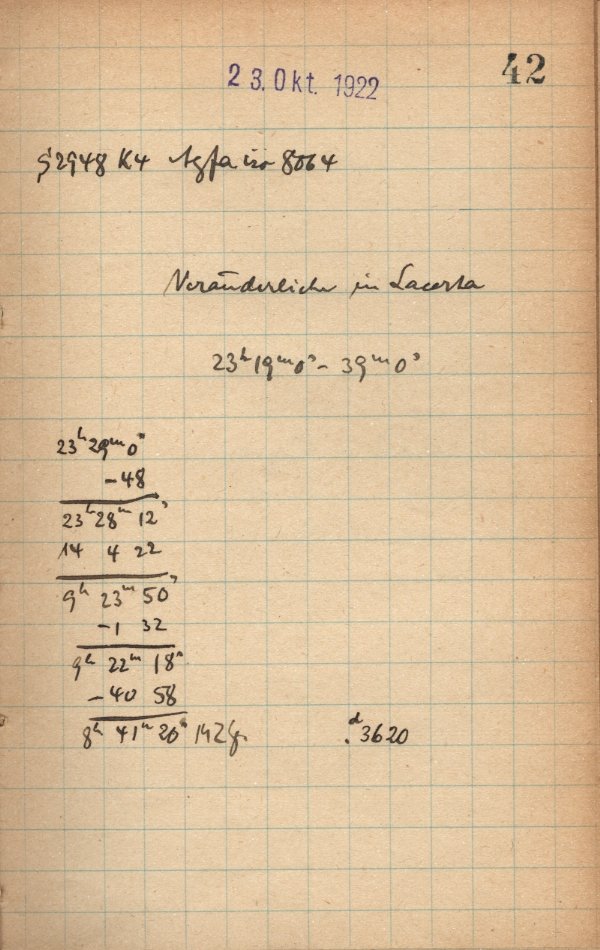 23. Okt. 1922
42
S2948 K4 Agfa iso 8064
Veränderliche in Lacerta
23ʰ19ᵐ0ˢ - 39ᵐ0ˢ
23ʰ29ᵐ0ˢ
-48
23ʰ28ᵐ12ˢ
14 4 22
9ʰ 23ᵐ 50ˢ
-1 32
9ʰ 22ᵐ 18ˢ
-40 58
8ʰ 41ᵐ 20ˢ MEZ
ᵈ.3620